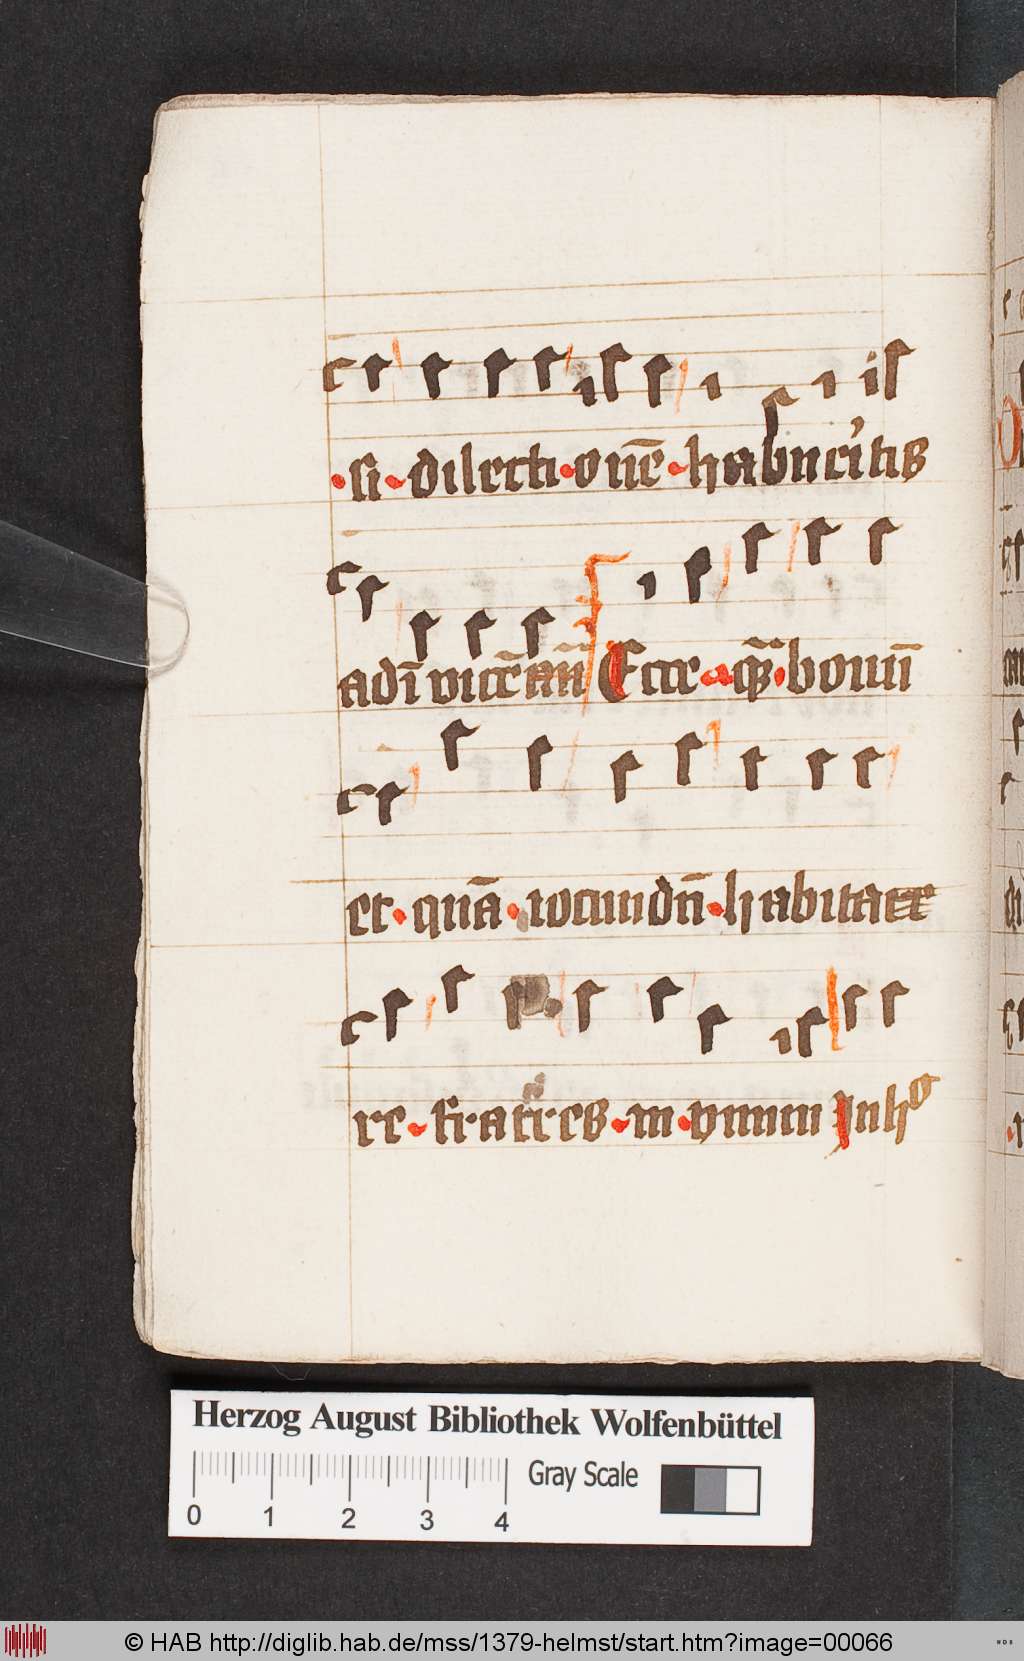 si dilectionē habueritis
adī vicē anī Ecce q̄ bonū
et quā iocundū habitare
re fratres in vnum In hᵒ
Herzog August Bibliothek Wolfenbüttel
0 1 2 3 4 Gray Scale
© HAB http://diglib.hab.de/mss/1379-helmst/start.htm?image=00066